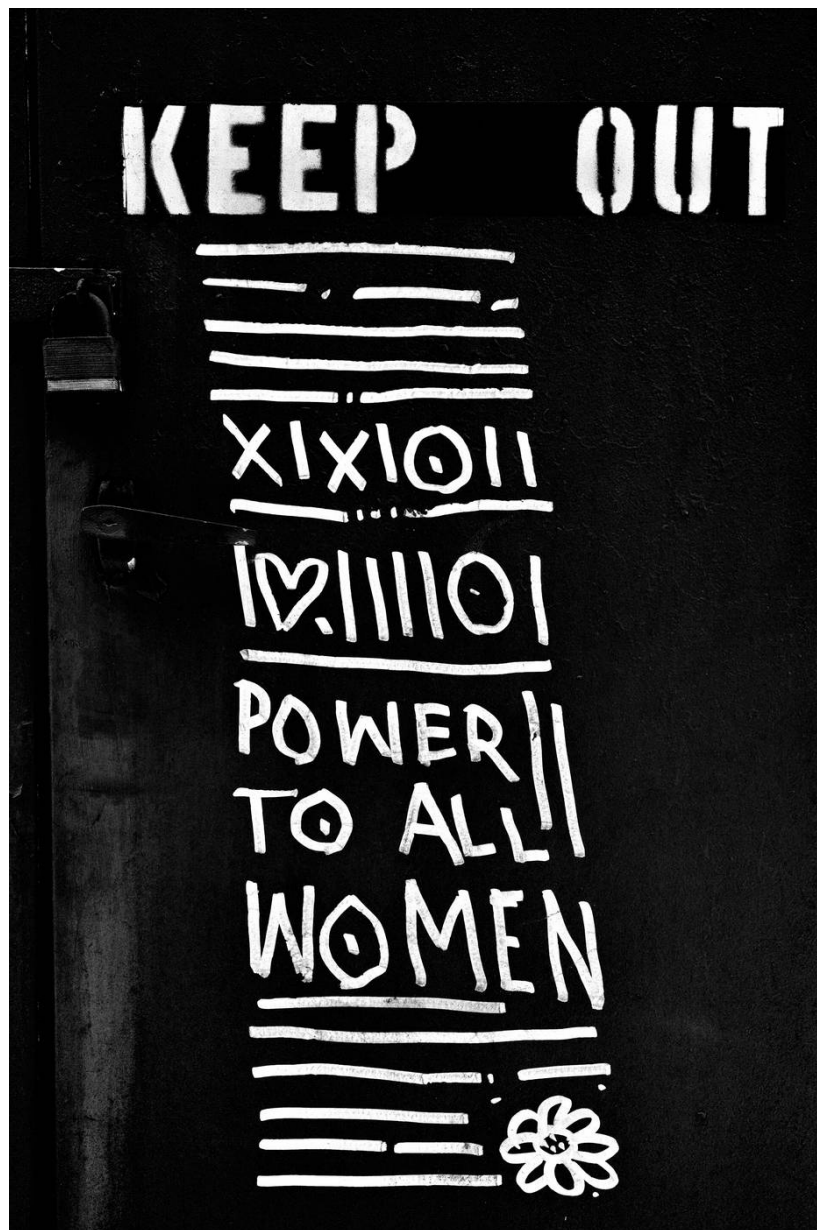 KEEP OUT
XIXIOII
I♡.IIIIIOI
POWER
TO ALL
WOMEN